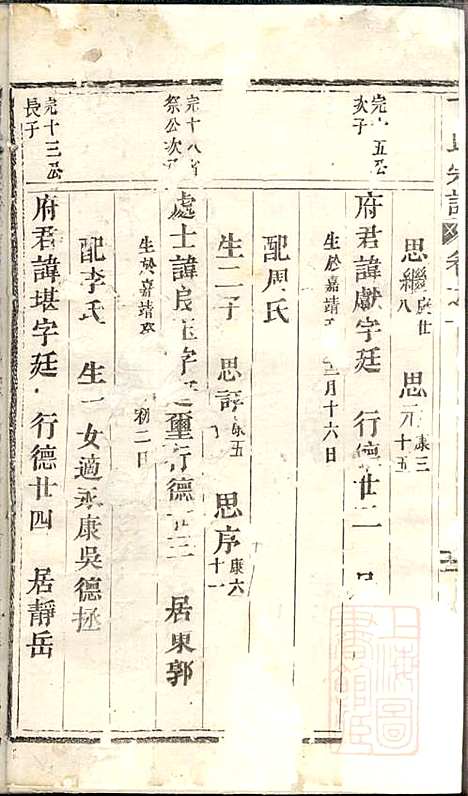 思繼 廣廿八 思 康三十五
完十五公次子
府君諱獻字廷 行德廿二
生於嘉靖 月十六日
配周氏
生二子 思 五 思序 康六十一
完十八 祭公次子
處士諱良 字 璽行德廿三 居東郭
生於嘉靖 初二日
配李氏 生一女適永康吳德拯
完十三公長子
府君諱堪字廷 行德廿四 居靜岳
上海圖書館藏